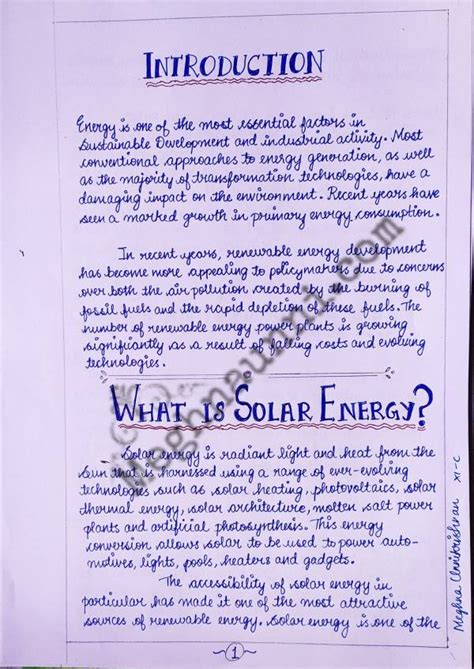 INTRODUCTION
Energy is one of the most essential factors in
Sustainable Development and industrial activity. Most
conventional approaches to energy generation, as well
as the majority of transformation technologies, have a
damaging impact on the environment. Recent years have
seen a marked growth in primary energy consumption.
In recent years, renewable energy development
has become more appealing to policymakers due to concerns
over both the air pollution created by the burning of
fossil fuels and the rapid depletion of these fuels. The
number of renewable energy power plants is growing
significantly as a result of falling costs and evolving
technologies.
WHAT IS SOLAR ENERGY?
Solar energy is radiant light and heat from the
Sun that is harnessed using a range of ever-evolving
technologies such as solar heating, photovoltaics, solar
thermal energy, solar architecture, molten salt power
plants and artificial photosynthesis. This energy
conversion allows solar to be used to power auto-
motives, lights, pools, heaters and gadgets.
The accessibility of solar energy in
particular has made it one of the most attractive
sources of renewable energy. Solar energy is one of the
1
Meghna Unnikrishnan XI-C
Meghnaunni.com